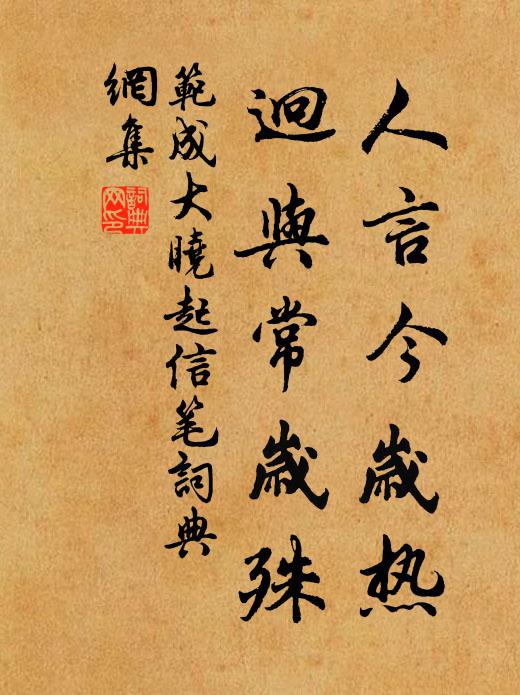 人言今歲热
迥與常歲殊
範成大曉起信笔詞典
網集
詞典網印